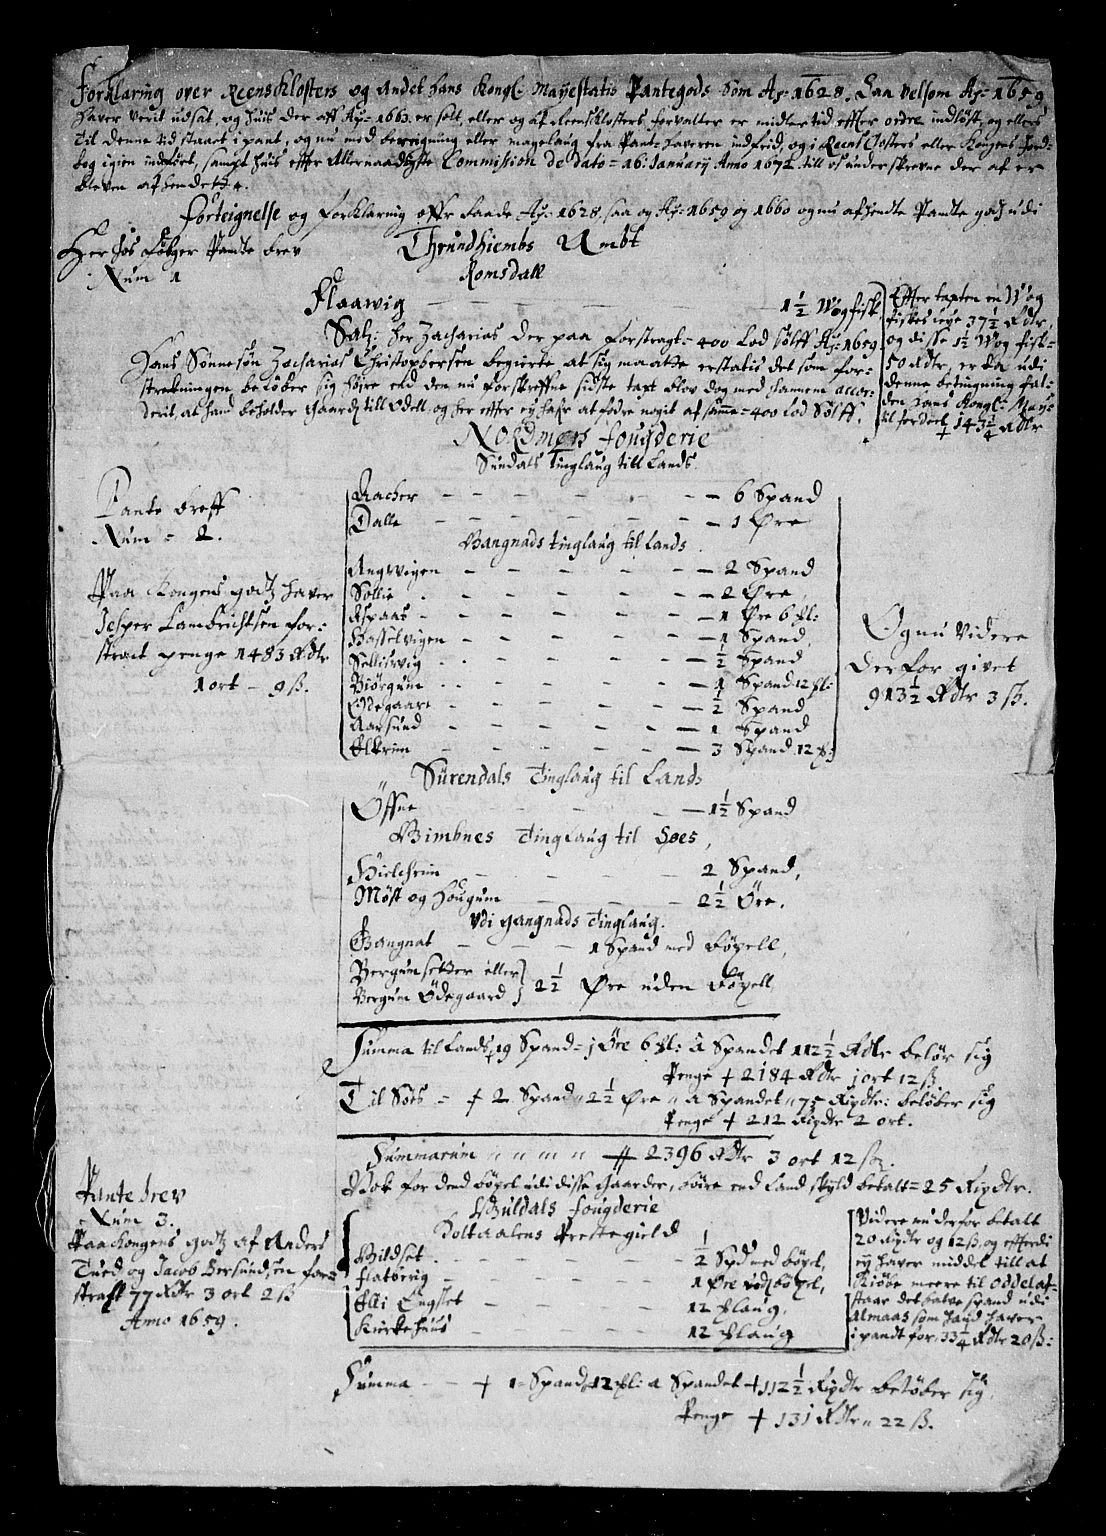 Forklaring over Reens Klosters og Andet hans Kongl: Mayestatis Pantegods Som Aō: 1628. Saa velsom Aō: 1659
haver verit udsat, og huis der aff Aō: 1663 er solt, eller og af Reensklosters forvalter er midler tid effter ordre indløst, og ellers
Til denne tid staait i pant, og nu med bevegung eller mageløug fra Pant-haveren indfrid, og i Reens Closters eller Kongens Jord-
bog igien indført, sampt huis effter Allernaadigste Commission de dato = 16: Januarij Anno 1672 till os underskrevne der af er
bleven afhendet.
Forteignelse og Forklaring offr saade Aō: 1628, saa og Aō: 1659 og 1660 og nu afhendte Pante godz udi
Her hos følger Pante brev
Num 1
Thrundhiembs Ambt
Romsdall
Flaawig — — — 1½ Wog fisk
Sal: Her Zacharias der paa Forstragt = 400 Lod sølff Aō: 1659
Hans Sønnesøn Zacharias Christophersen begierte at sig maatte erstatis det som for-
strekningen beløber sig høire end den nu forskreffne sidste taxt blev dog med hannem accor-
derit, at hand beholder Gaard till Odell, og her effter ey hafr at fodre nogit af samme = 400 Lod Sølff.
Effter taxten en Wog
fiskes leye 37½ Rdr,
og disse 1½ Wog fisk =
50 Rdr, er da udi
denne betingning fal-
den hans Kongl: May:
til fordeel
+ 143¾ Rdr
Nordmørs Fougderie
Sundals Tinglaug till Lands.
Pante breff
Num = 2.
Paa Kongens godz haver
Jesper Lambrichtsen for-
strait penge 1483 Rdr
1 ort — 9 ß.
Racher — — — 6 Spand
Dalle — — — 1 Øre
Gangnads tinglaug til Lands
Angwigen — — — 2 Spand
Søllie — — — 2 Øre,
Aspaas — — — 1 Øre 6 pl:
Hasselvigen — — — 1 Spand
Sellisvig — — — ½ Spand
Biørgum — — — 1 Spand 12 pl:
Ødegaart — — — ½ Spand
Aarsund — — — 1 Spand
Elkrim — — — 3 Spand 12 pl:
Og nu Videre
derfor givet
913½ Rdr 3 ß.
Surendals Tinglaug til Lands
Øffne — — — 1½ Spand
Bimbnes Tinglaug til Søes,
Hielcheim — — — 2 Spand,
Møst og Hougum — — — 2½ Øre.
Udi Gangnads Tinglaug.
Gangnat — — — 1 Spand med Bøxell,
Bergumsetter eller
Bergum Ødegaard } 2½ Øre uden Bøxell,
Summa til Lands, + 19 Spand = j Øre 6 pl: a Spandet 112½ Rdr beløbr sig
Penge + 2184 Rdr j ort 12 ß
Til Søes = + 2 Spand " 2½ Øre " a Spandet " 75 Rixdr: beløber sig
Penge + 212 Rixdr 2 ort.
Summarum " " " " ++ 2396 Rdr 3 ort 12 ß.
Nok for dend bøxel udi disse Gaarder, høire end Landskyld betalt = 25 Rixdr.
Pante brev
Num 3.
Paa Kongens godz af Anders
Tued og Jacob Bersundsen for-
strakt 77 Rdr 3 ort 2 ß
Anno 1659.
Guldals Fougderie
Holtaalens Prestegield
Gildset — — — ½ Spd med bøxel,
Flatberig — — — 1 Øre med bøxel,
Elli Engslet — — — 12 plaug,
Kirkehuus — — — 12 plaug
Videre nu derfor betalt
20 Rixdr og 12 ß, og efferdi
ey haver middel till at
Kiøbe meere til Oddel af-
staar det halve spand udi
Almaas som hand haver
i pandt for: 33¼ Rdr 20 ß:
Summa — — + 1 = Spand 12 pl: a Spandet + 112½ Rixdr beløber sig,
Penge + 131 Rdr " 22 ß.